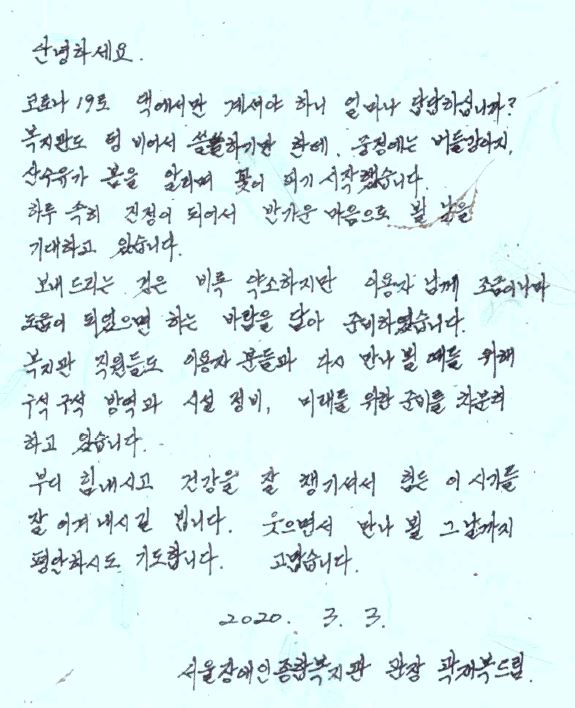 안녕하세요.
코로나 19로 댁에서만 계셔야 하니 얼마나 답답하십니까?
복지관도 텅 비어서 쓸쓸하기만 한데, 중정에는 버들강아지,
산수유가 봄을 알리며 꽃이 피기 시작했습니다.
하루 속히 진정이 되어서 반가운 마음으로 뵐 날을
기대하고 있습니다.
보내드리는 것은 비록 약소하지만 이용자 님께 조금이나마
도움이 되었으면 하는 바람을 담아 준비하였습니다.
복지관 직원들도 이용자 분들과 다시 만나 뵐 때를 위해
구석 구석 방역과 시설 정비, 미래를 위한 준비를 차분히
하고 있습니다.
부디 힘내시고 건강을 잘 챙기셔서 힘든 이 시기를
잘 이겨 내시길 빕니다. 웃으면서 만나 뵐 그날까지
평안하시도록 기도합니다. 고맙습니다.
2020. 3. 3.
서울장애인종합복지관 관장 곽재복드림.